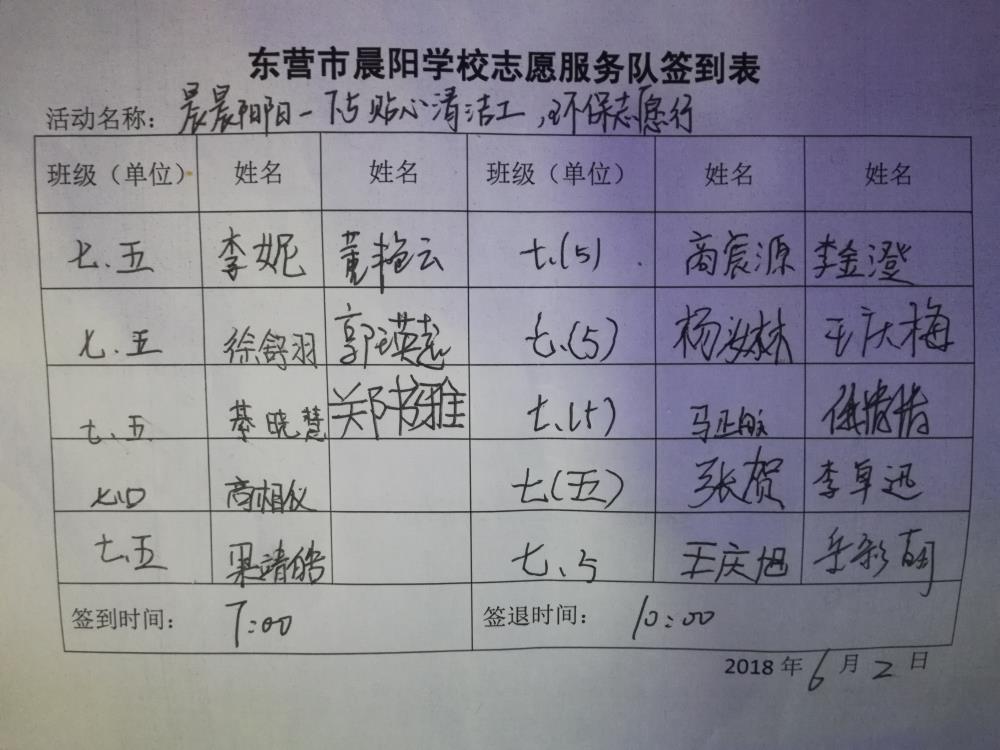 东营市晨阳学校志愿服务队签到表
活动名称：晨晨阳阳一下5贴心清洁工，环保志愿行
班级（单位） 姓名 姓名 班级（单位） 姓名 姓名
七.五 李妮 董艳云 七.(5) 商宸源 李金澄
七.五 徐舒羽 郭瑛志 七.(5) 杨汝林 王庆梅
七.五 綦晓慧 郑书雅 七.(5) 马正航
七.口 商相仪 七(五) 张贺 李卓迅
七.五 梁靖皓 七.5 王庆旭
签到时间： 7:00 签退时间： 10:00
2018年6月2日